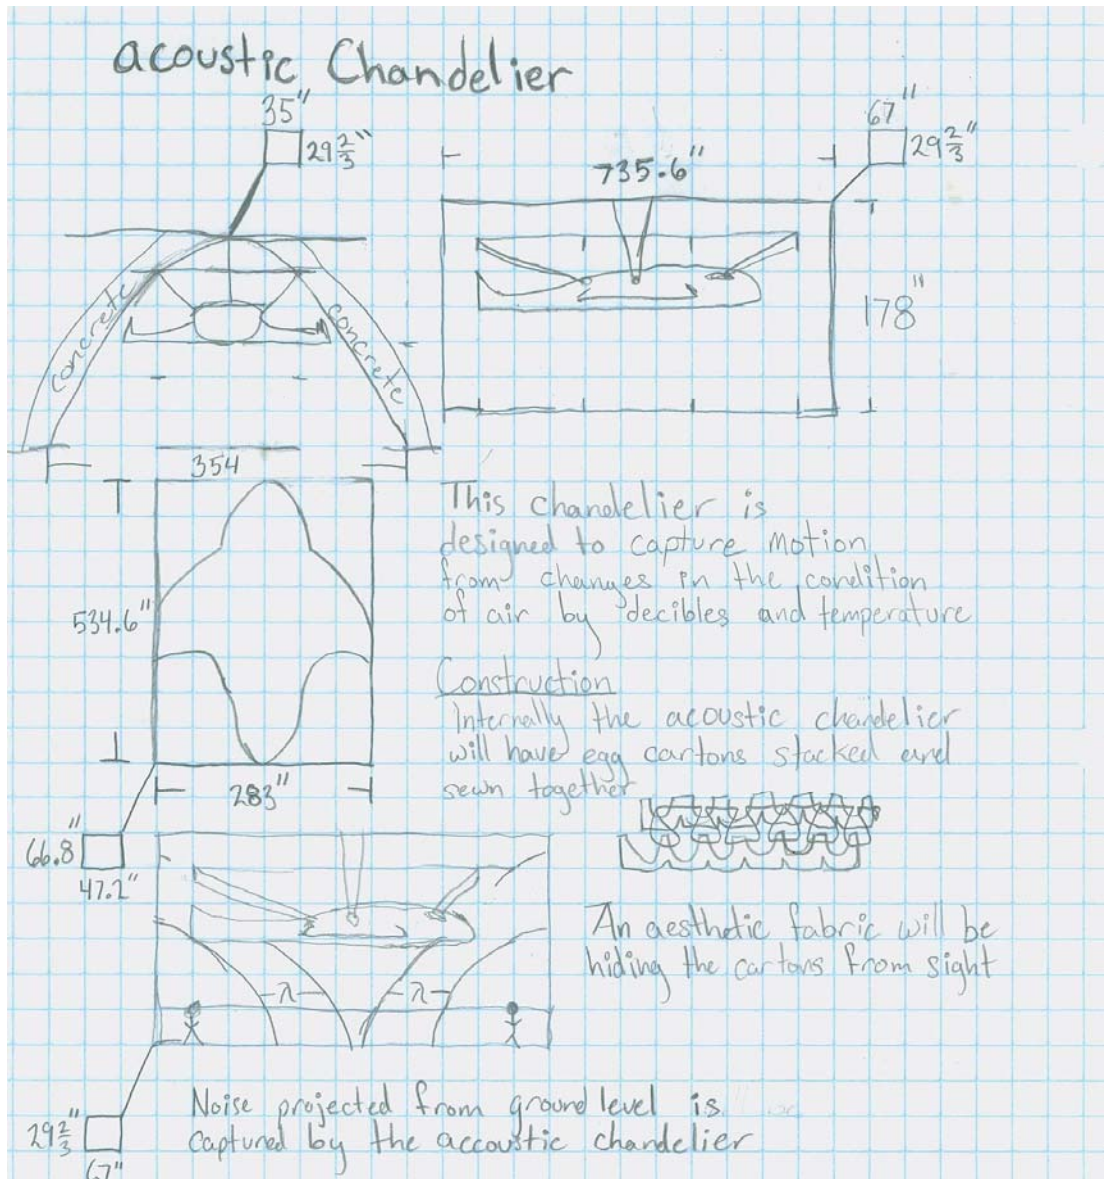 acoustic Chandelier
35"
29 2/3"
67"
29 2/3"
735.6"
178"
concrete
concrete
354
534.6"
283"
66.8"
47.2"
This chandelier is
designed to capture motion
from changes in the condition
of air by decibles and temperature
Construction
Internally the acoustic chandelier
will have egg cartons stacked and
sewn together
An aesthetic fabric will be
hiding the cartons from sight
λ
λ
Noise projected from ground level is
captured by the accoustic chandelier
29 2/3"
67"